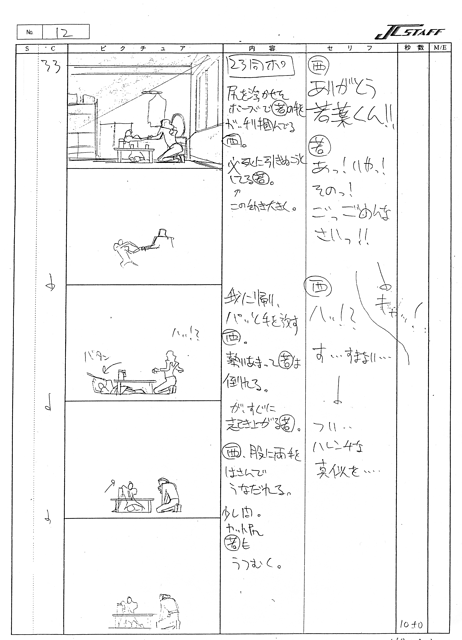 No 12
J.C.STAFF
S C ピクチュア 内容 セリフ 秒数 M/E
33
23同ポ
尻を浮かせた
ポーズで若の手を
ガッチリ掴んでる
西。
必死に引きぬこうと
してる若。
この動き大きく。
西
ありがとう
若葉くん!!
若
あっ!いやっ!
そのっ!
ごっごめんな
さいっ!!
きゃっ!
ハッ!?
バタン
我に帰り、
パッと手を放す
西。
勢いあまって若は
倒れる。
が、すぐに
起き上がる若。
西、股に両手を
はさんで
うなだれる。
少し間。
カット尻
若も
うつむく。
西
ハッ!?
す…すまない…
つい…
ハレンチな
真似を…
10+0